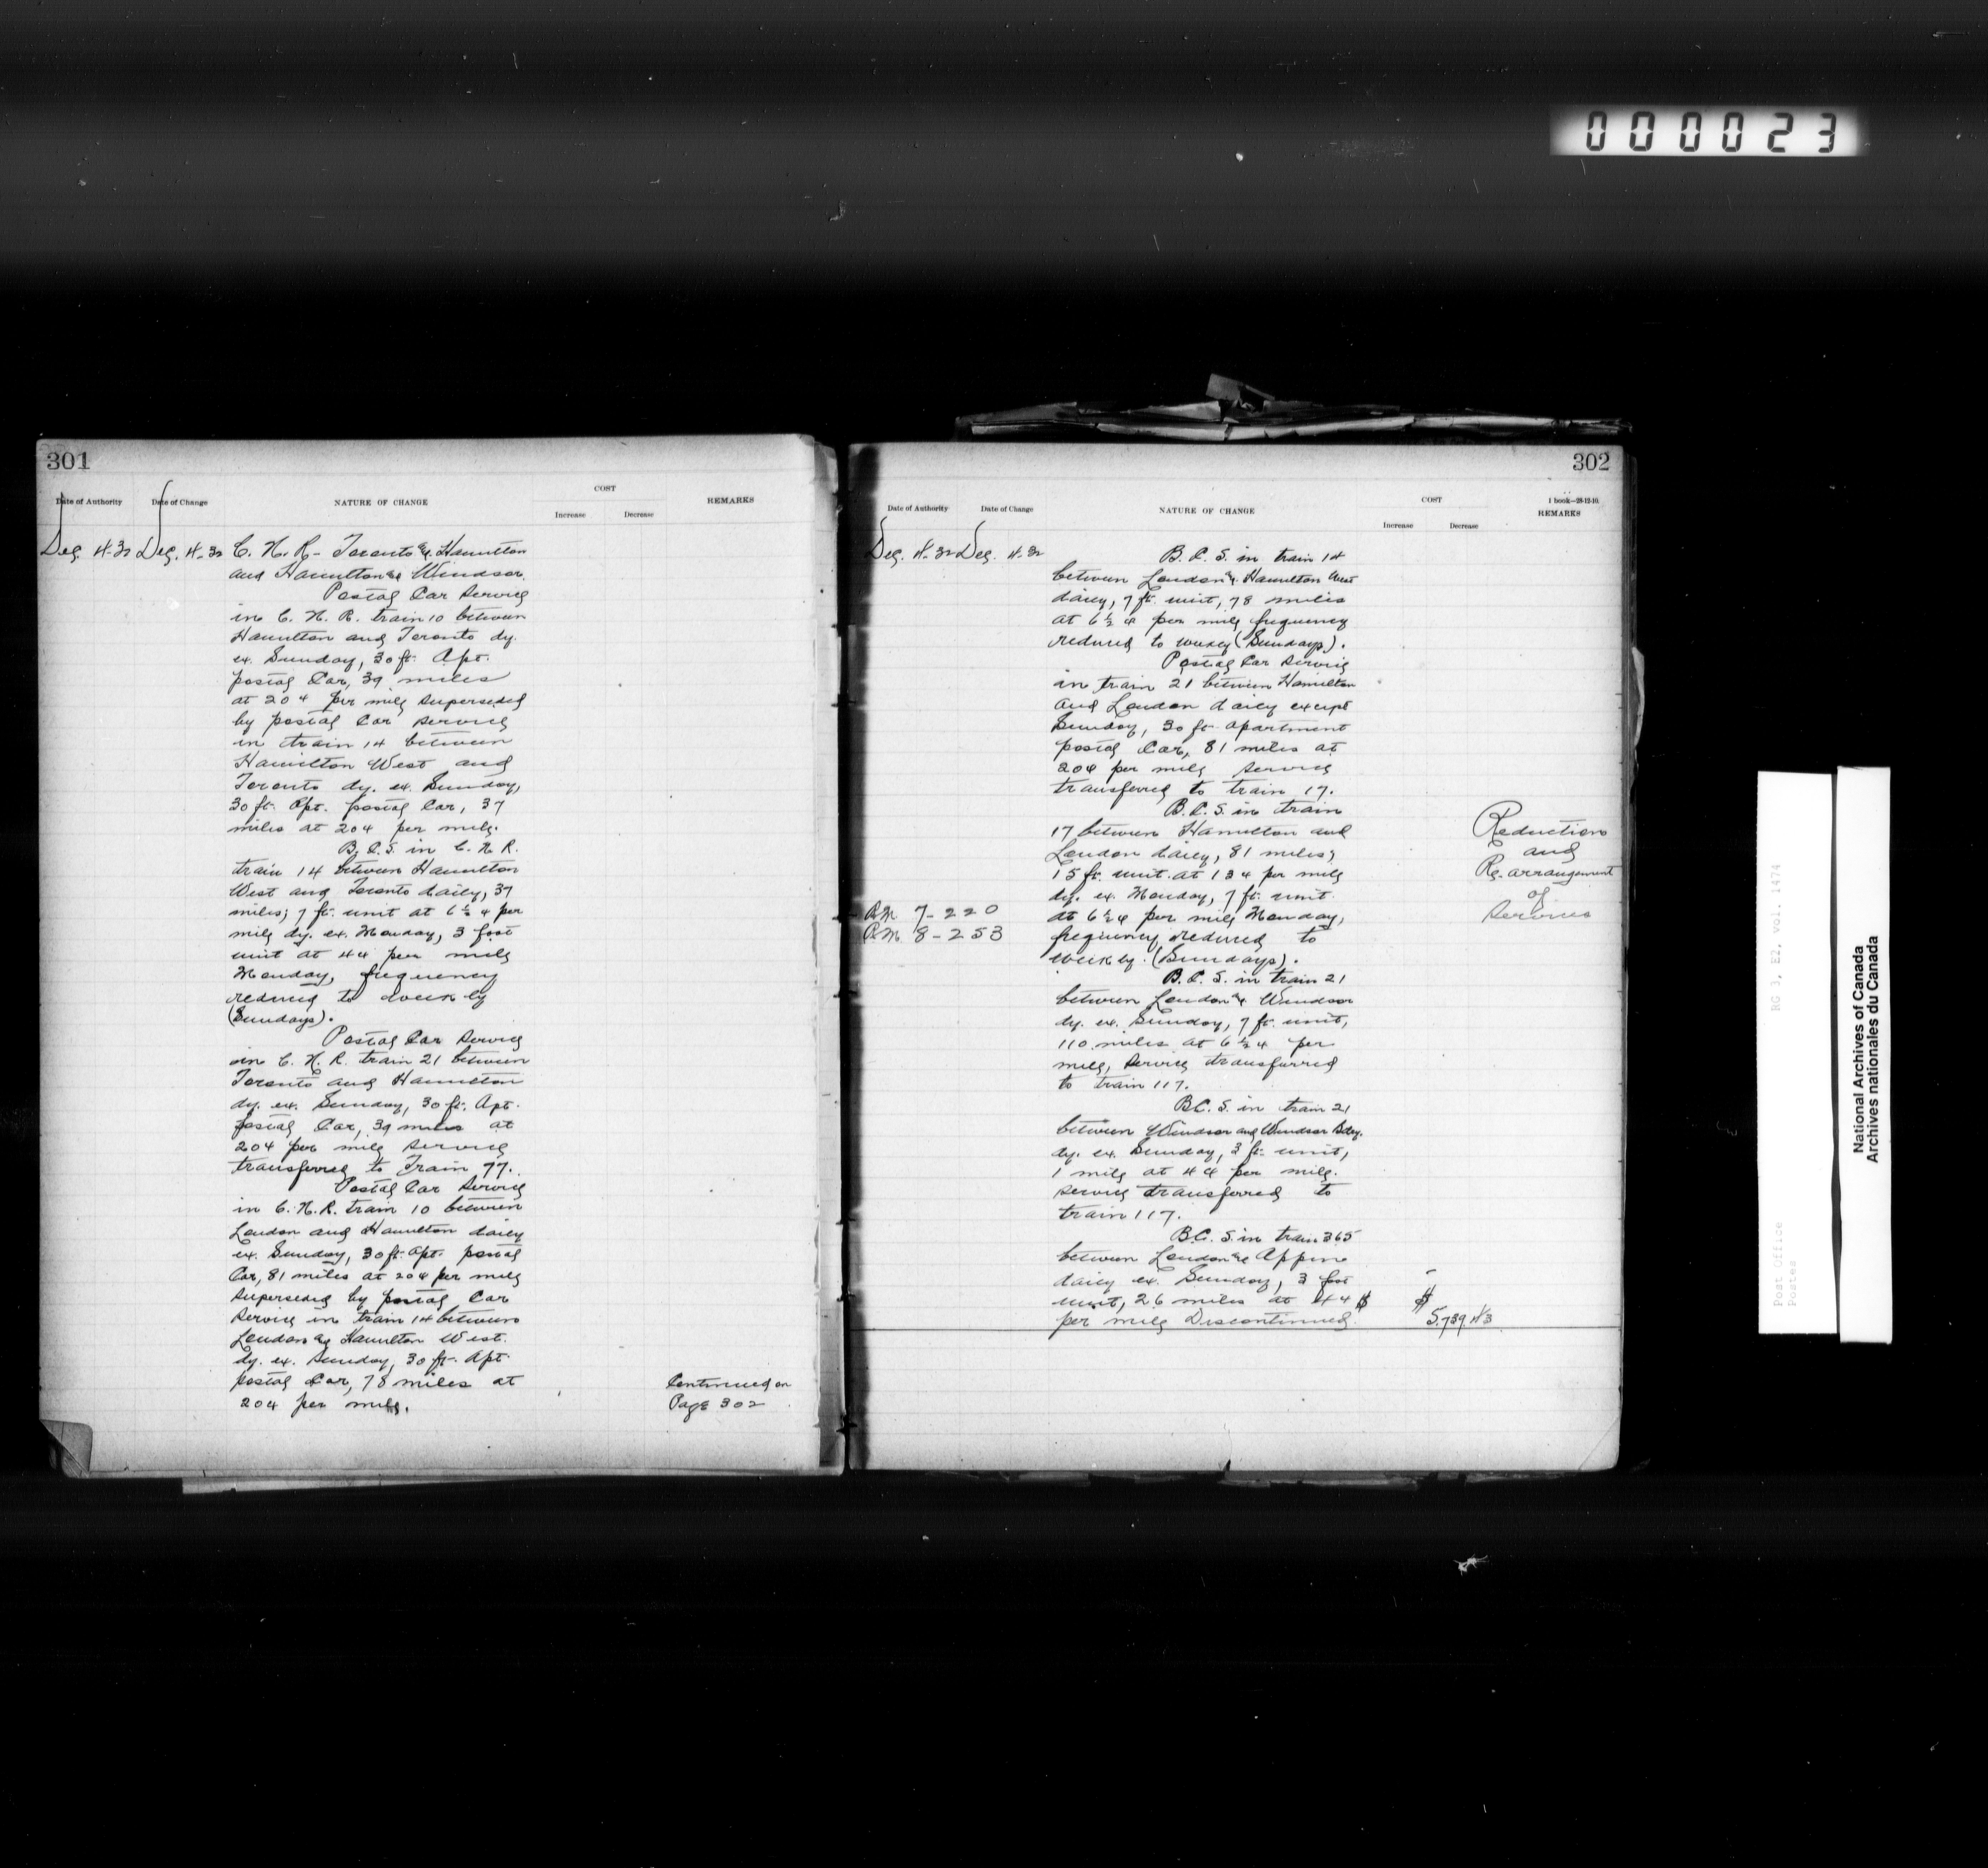 000023
301
Date of Authority
Date of Change
NATURE OF CHANGE
COST
Increase
Decrease
REMARKS
Dec. 4-32 Dec. 4-32 C. N. R - Toronto & Hamilton
and Hamilton & Windsor.
Postal Car Service
in C. N. R. train 10 between
Hamilton and Toronto dy.
ex. Sunday, 30 ft. Apt.
postal Car, 39 miles
at 20¢ per mile superseded
by postal Car service
in train 14 between
Hamilton West and
Toronto dy. ex. Sunday,
30 ft. Apt. postal Car, 37
miles at 20¢ per mile.
B. C. S. in C. N. R.
train 14 between Hamilton
West and Toronto daily, 37
miles; 7 ft. unit at 6½ ¢ per
mile dy. ex. Monday, 3 foot
unit at 4¢ per mile
Monday, frequency
reduced to weekly
(Sundays).
Postal Car Service
in C. N. R. train 21 between
Toronto and Hamilton
dy. ex. Sunday, 30 ft. Apt.
postal Car, 39 miles at
20¢ per mile service
transferred to Train 77.
Postal Car Service
in C. N. R. train 10 between
London and Hamilton daily
ex. Sunday, 30 ft. Apt. postal
Car, 81 miles at 20¢ per mile
superseded by postal Car
service in train 14 between
London & Hamilton West.
dy. ex. Sunday, 30 ft. Apt.
postal Car, 78 miles at
20¢ per mile.
Continued on
Page 302
302
1 book—28-12-10.
Date of Authority
Date of Change
NATURE OF CHANGE
COST
Increase
Decrease
REMARKS
Dec. 4-32 Dec. 4-32
B. C. S. in train 14
between London & Hamilton West
daily, 7 ft. unit, 78 miles
at 6½ ¢ per mile frequency
reduced to weekly (Sundays).
Postal Car Service
in train 21 between Hamilton
and London daily except
Sunday, 30 ft. apartment
postal Car, 81 miles at
20¢ per mile service
transferred to train 17.
B. C. S. in train
17 between Hamilton and
London daily, 81 miles;
15 ft. unit at 13¢ per mile
dy. ex. Monday, 7 ft. unit
at 6½¢ per mile Monday,
frequency reduced to
weekly. (Sundays).
RM 7-220
RM 8-253
Reduction
and
Re-arrangement
of
Services
B. C. S. in train 21
between London & Windsor
dy. ex. Sunday, 7 ft. unit,
110 miles at 6½¢ per
mile, service transferred
to train 117.
B.C. S. in train 21
between Windsor and Windsor Bdry.
dy. ex. Sunday, 3 ft. unit,
1 mile at 4¢ per mile.
service transferred to
train 117.
B.C. S. in train 365
between London & Appin
daily ex. Sunday, 3 foot
unit, 26 miles at 4¢ $ $
per mile Discontinued. 5,739.43
Post Office
Postes
RG 3, E2, vol. 1474
National Archives of Canada
Archives nationales du Canada